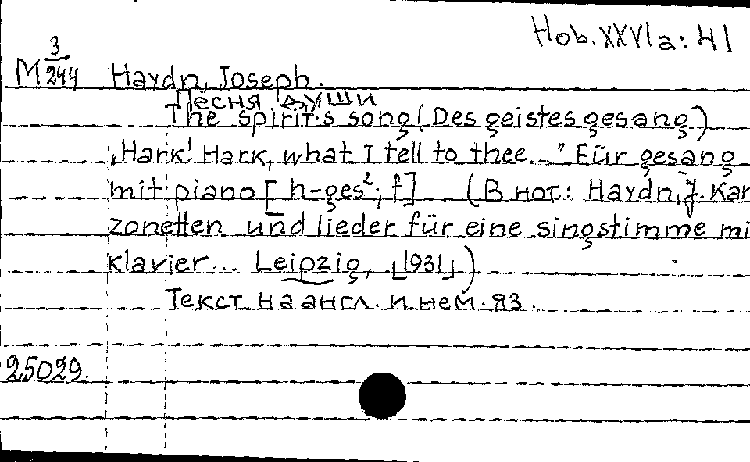 Hob. XXVIa: 41
M 3/244 Haydn, Joseph.
Песня души
The spirit's song (Des geistes gesang)
„Hark! Hark, what I tell to thee..." Für gesang
mit piano [h-ges²; f] (В нот.: Haydn, J. Kan
zonetten und lieder für eine singstimme mi
klavier... Leipzig, [1931])
Текст на англ. и нем. яз.
25029